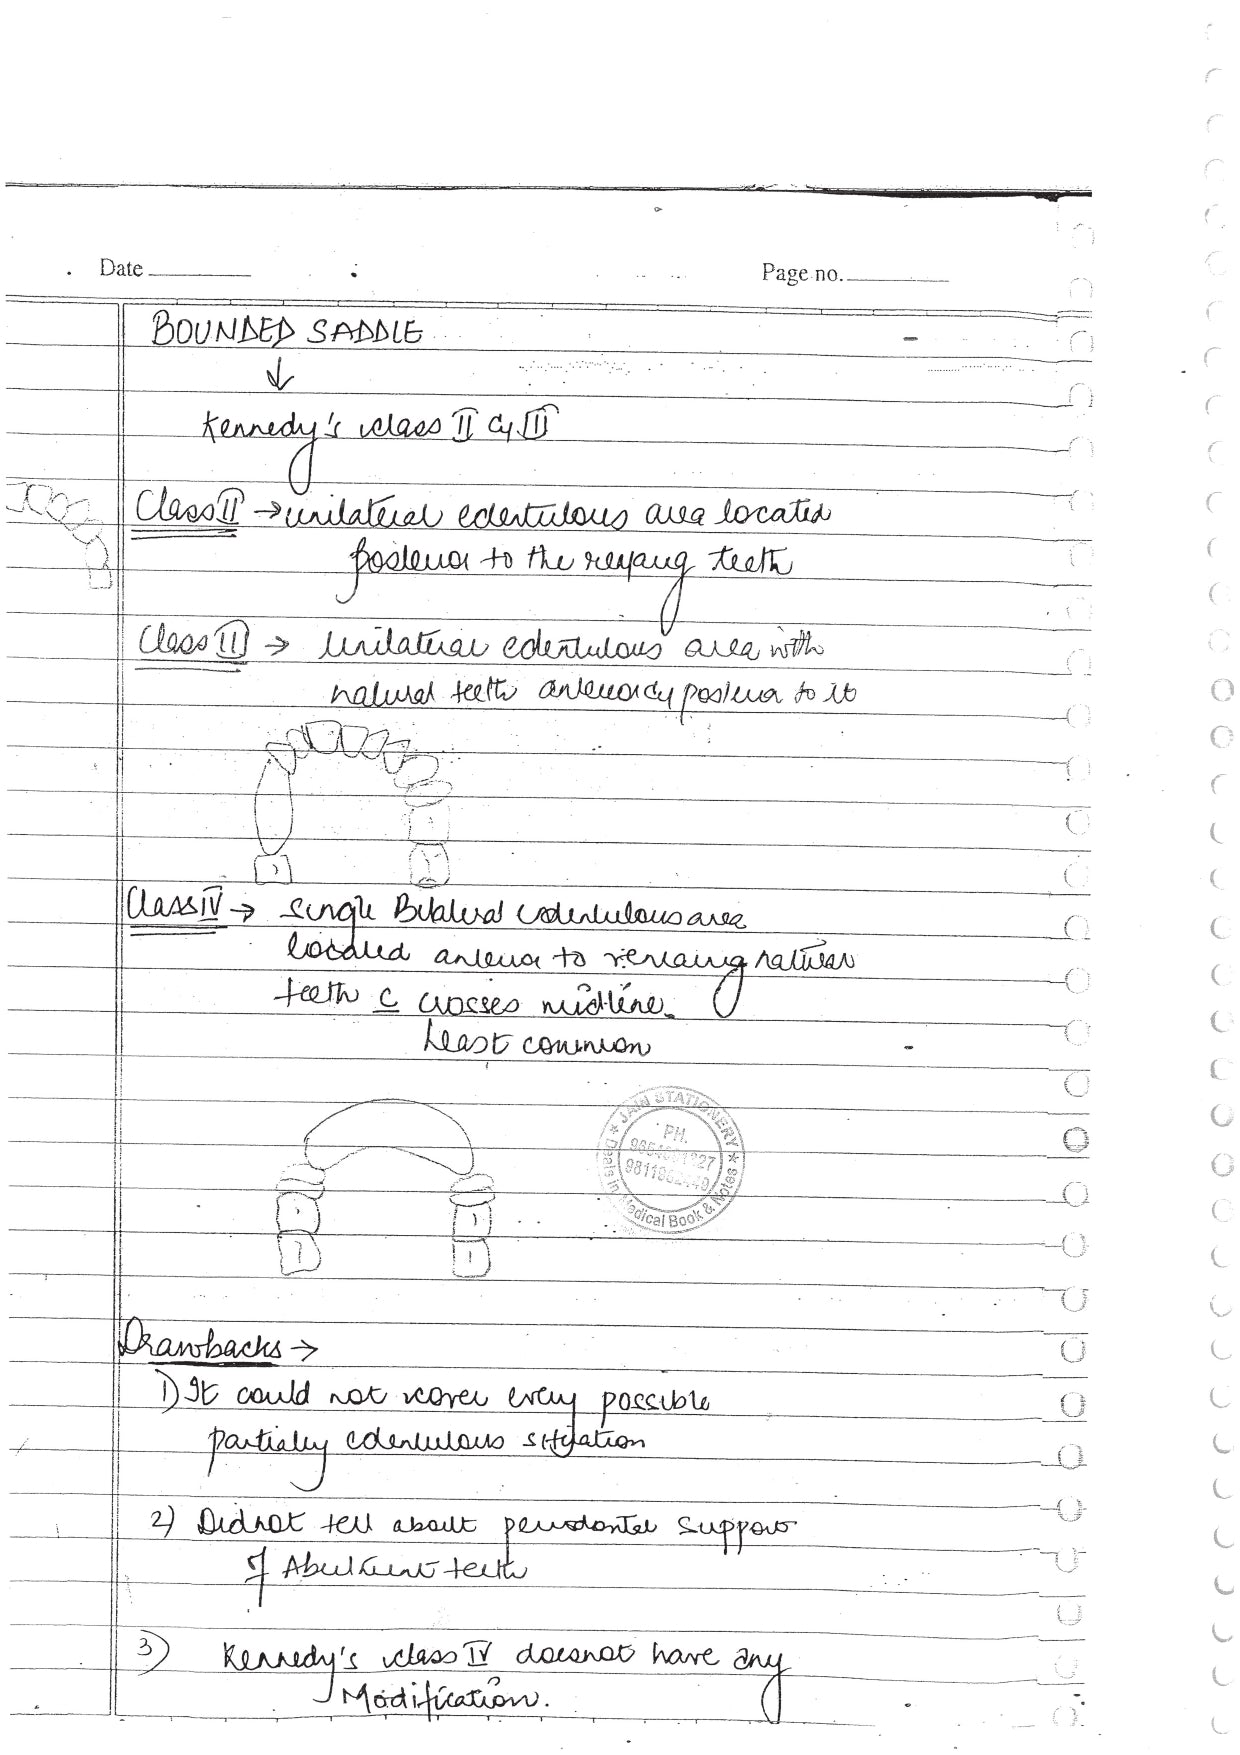 Date
Page no.
BOUNDED SADDLE
↓
Kennedy's class II
Class II → unilateral edentulous area located
posterior to the teeth
Class III → Unilateral edentulous area with
natural teeth anterior posterior to it
Class IV → single Bilateral edentulous area
located anterior to natural
teeth c crosses midline.
Least common
★ JAIN STATIONERY ★
Deals in Medical Book & Notes
PH.
Drawbacks →
1) It could not cover every possible
partially edentulous situation
2) Did not tell about periodontal support
of Abutment teeth
3) Kennedy's class IV doesnot have any
Modification.